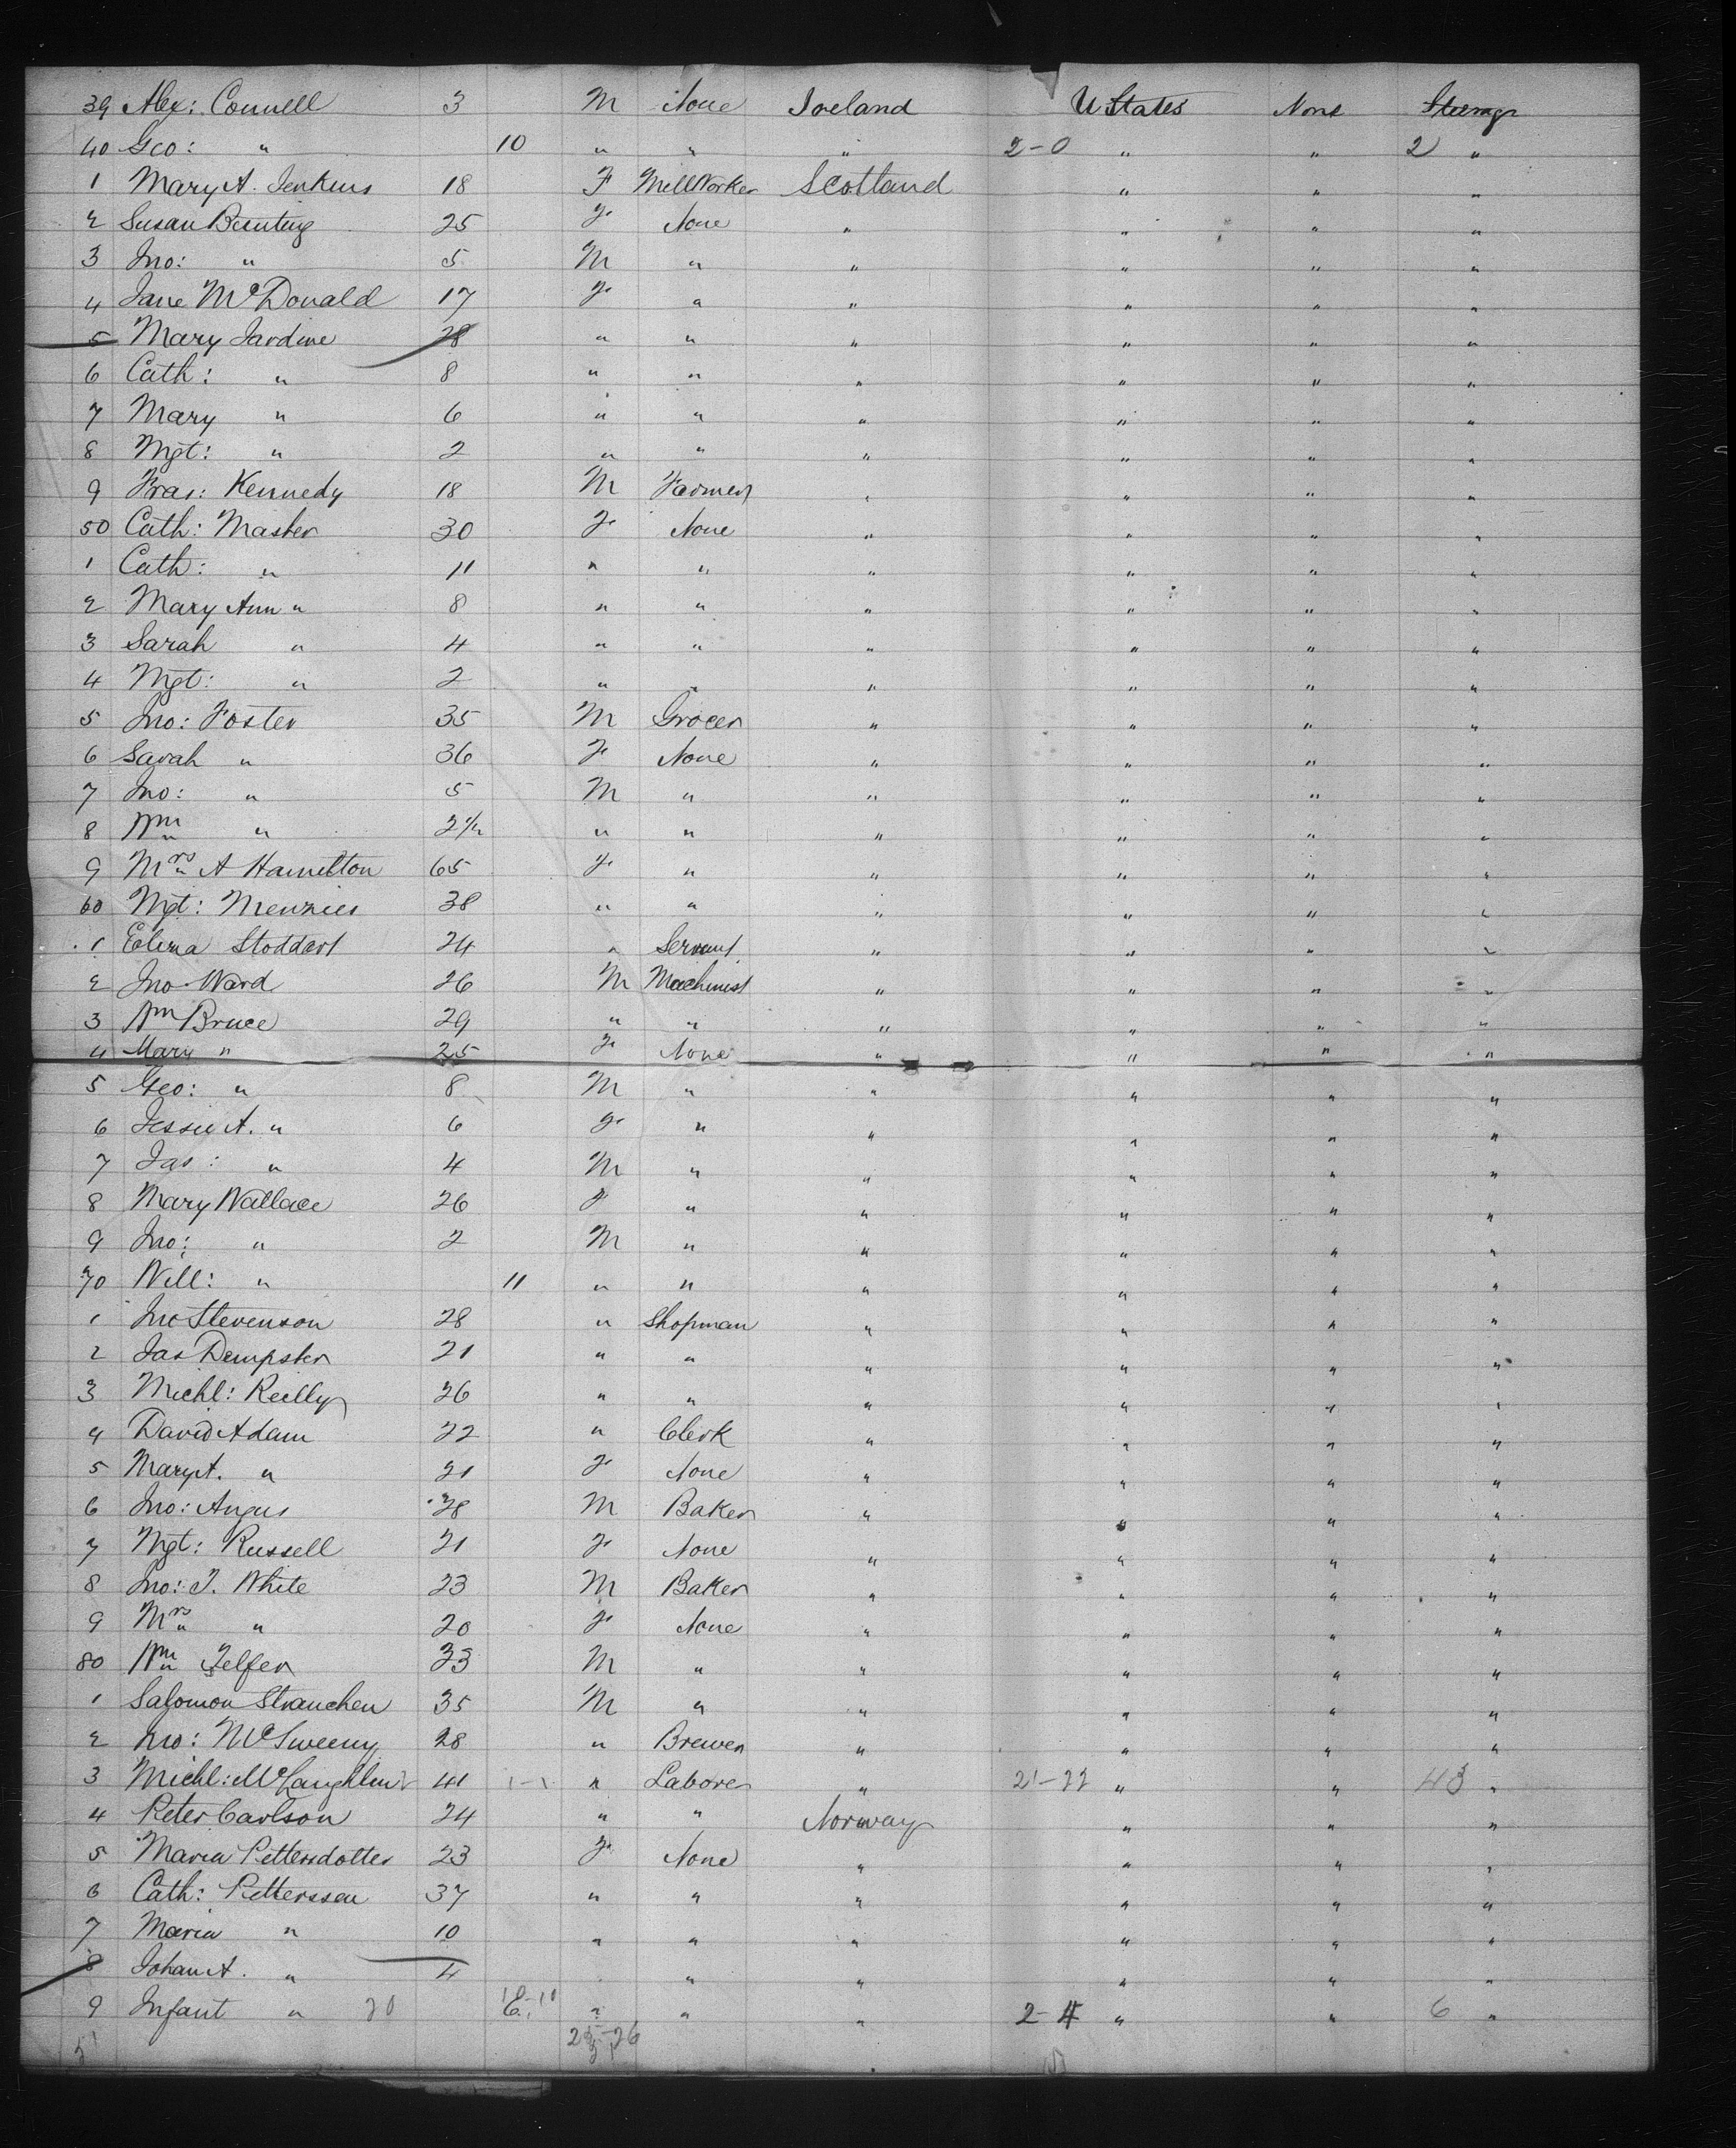 39 Alex: Connell 3 M None Ireland U States None Steerage
40 Geo: " 10 " " " 2-0 " " 2 "
1 Mary A. Jenkins 18 F Mill Worker Scotland " " "
2 Susan Bunting 25 F None " " " "
3 Jno: " 5 M " " " " "
4 Jane McDonald 17 F " " " " "
5 Mary Jardine 28 " " " " " "
6 Cath: " 8 " " " " " "
7 Mary " 6 " " " " " "
8 Mgt: " 2 " " " " " "
9 Fras: Kennedy 18 M Farmer " " " "
50 Cath: Master 30 F None " " " "
1 Cath: " 11 " " " " " "
2 Mary Ann " 8 " " " " " "
3 Sarah " 4 " " " " " "
4 Mgt: " 2 " " " " " "
5 Jno: Foster 35 M Grocer " " " "
6 Sarah " 36 F None " " " "
7 Jno: " 5 M " " " " "
8 Wm " 2½ " " " " " "
9 Mrs A Hamilton 65 F " " " " "
60 Mgt: Menzies 38 " " " " " "
1 Stoddart 24 " Servant " " " "
2 Jno Ward 26 M Machinist " " " "
3 Wm Bruce 29 " " " " " "
4 Mary " 25 F None " " " "
5 Geo: " 8 M " " " " "
6 Jessie A. " 6 F " " " " "
7 Jas: " 4 M " " " " "
8 Mary Wallace 26 F " " " " "
9 Jno: " 2 M " " " " "
70 Will: " 11 " " " " " "
1 Jno Stevenson 28 " Shopman " " " "
2 Jas Dempster 21 " " " " " "
3 Michl: Reilly 26 " " " " " "
4 David Adam 22 " Clerk " " " "
5 Mary A. " 21 F None " " " "
6 Jno: Angus 28 M Baker " " " "
7 Mgt: Russell 21 F None " " " "
8 Jno: T. White 23 M Baker " " " "
9 Mrs " 20 F None " " " "
80 Wm Telfer 23 M " " " " "
1 Salomon Strauchen 35 M " " " " "
2 Jno: McSweeny 28 " Brewer " " " "
3 Michl: McLaughlin 41 1-1 " Laborer " 21-22 " " 43 "
4 Peter Carlson 24 " " Norway " " "
5 Maria Pettersdotter 23 F None " " " "
6 Cath: Pettersson 37 " " " " " "
7 Maria " 10 " " " " " "
8 Johan A. " 4 " " " " "
9 Infant " 20 " " " 2-4 " " 6 "